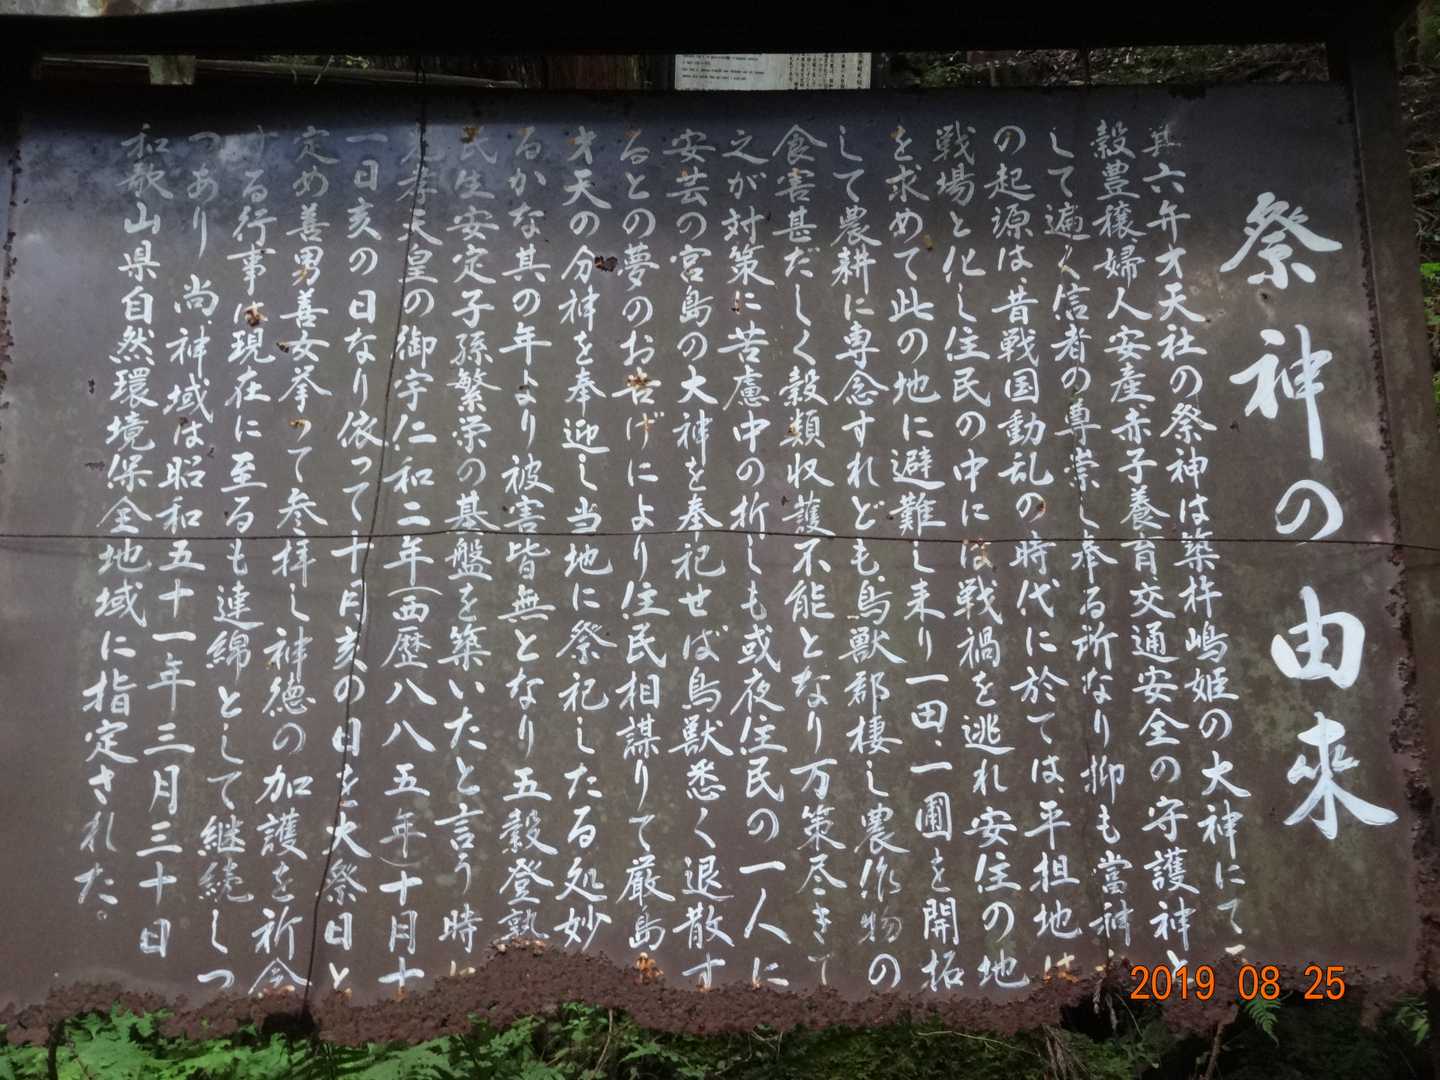 祭神の由来
其六弁才天社の祭神は築杵嶋姫の大神にて
穀豊穣、婦人安産赤子養育交通安全の守護神と
して遍く信者の尊崇し奉る所なり抑も當神
の起源は、昔戦国動乱の時代に於ては、平担地は
戦場と化し住民の中には戦禍を逃れ安住の地
を求めて此の地に避難し来り一田、一圃を開拓
して農耕に専念すれども鳥獣郡棲し農作物の
食害甚だしく穀類収護不能となり万策尽きて
之が対策に苦慮中の折しも或夜住民の一人に
安芸の宮島の大神を奉祀せば鳥獣悉く退散す
るとの夢のお告げにより住民相謀りて厳島
才天の分神を奉迎し当地に祭祀したる処妙
るかな其の年より被害皆無となり五穀登熟
民生安定子孫繁栄の基盤を築いたと言う時に
光孝天皇の御宇仁和二年(西歴八八五年)十月十
一日亥の日なり依って十月亥の日を大祭日と
定め善男善女挙って参拝し神徳の加護を祈念
する行事は現在に至るも連綿として継続しつ
つあり 尚神域は昭和五十一年三月三十日
和歌山県自然環境保全地域に指定された。
2019 08 25